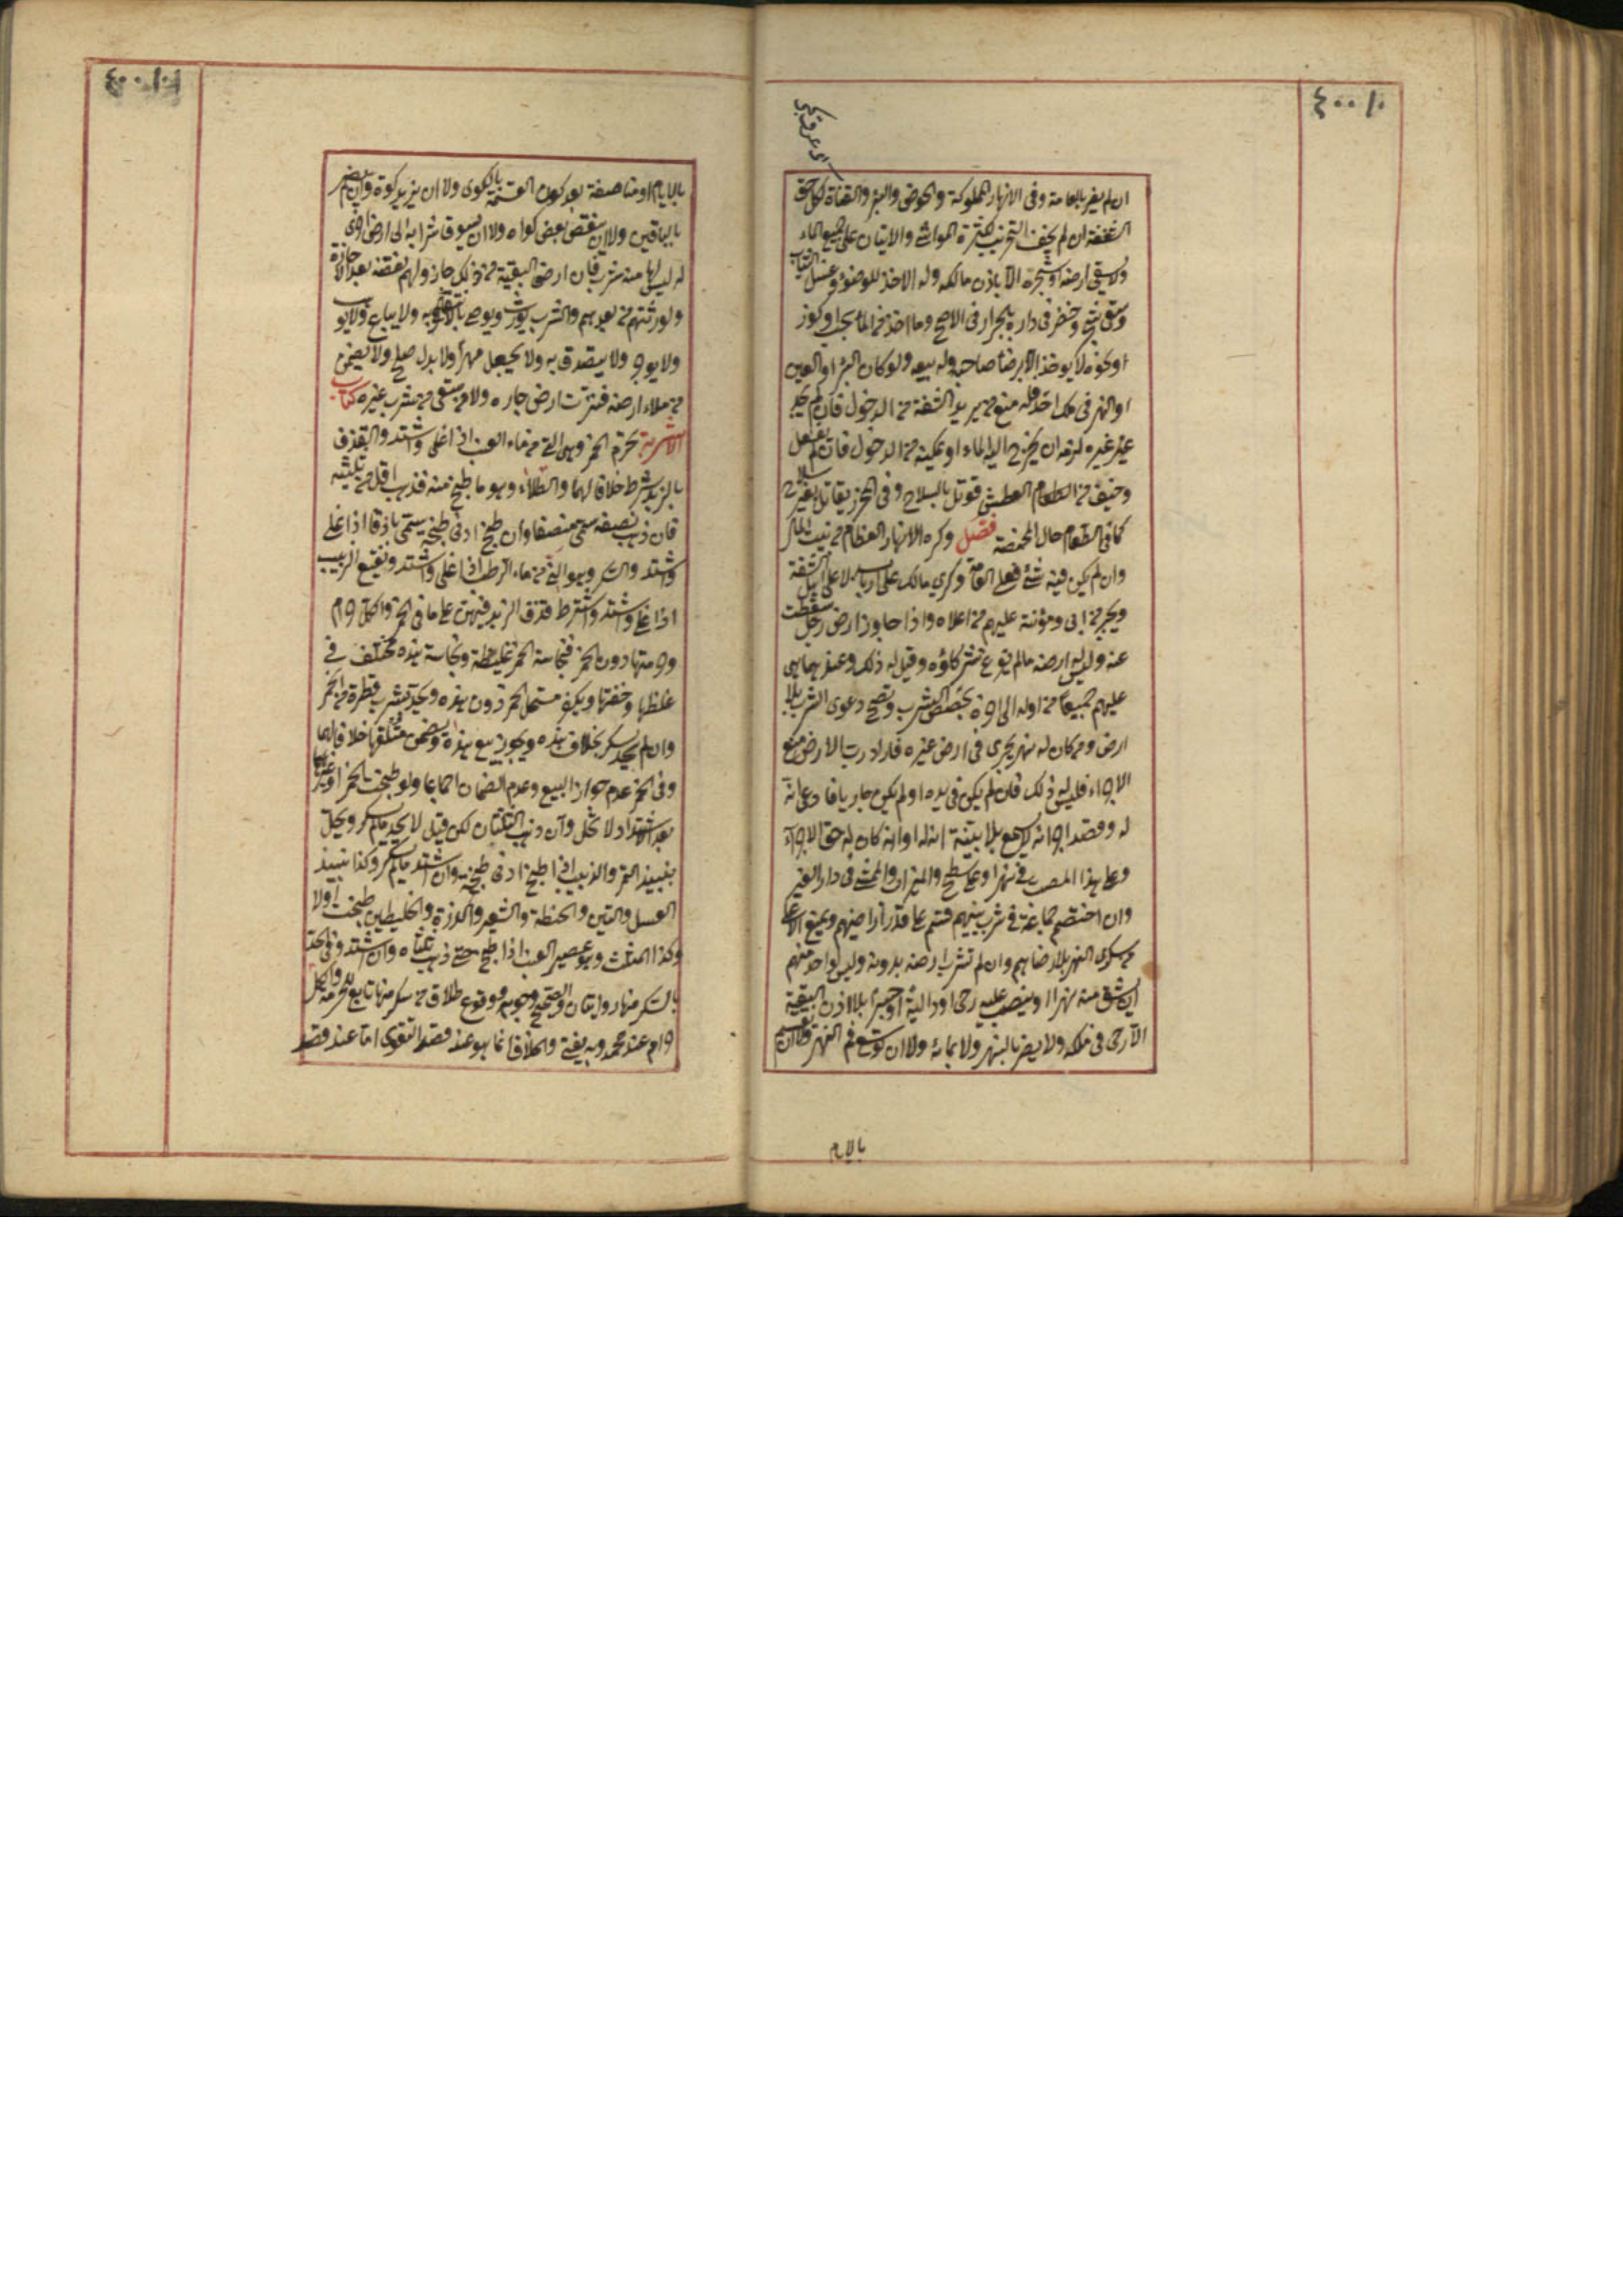 ان لم يضر بالعامة وفى الانهار المملوكة والحوض والبئر والقناة لكل حق
الشفة ان لم يخف التخريب لكثرة المواشى والاتيان على جميع الماء
ولا سقى ارضه او شجره الا باذن مالكه وله الاخذ للوضوء وغسل الثياب
وسقى شجر وخضر فى داره بالجرار فى الاصح وما اخذ من الماء بحب او كوز
او نحوه لا يوخذ الا برضا صاحبه وله بيعه ولو كان البئر او العين
او النهر فى ملك احد فله منع من يريد الشفة من الدخول فان لم يجد
غير غيره لزمه ان يخرج اليه الماء او يمكنه من الدخول فان لم يفعل
وخيف من العطش قوتل بالسلاح وفى المحرز يقاتل بغير سلاح
كما فى الطعام حال المخمصة فصل وكرى الانهار العظام من بيت المال
وان لم يكن فيه شئ فعلى العامة وكرى مالك على اربابه لا على اهل الشفة
ويجبر من ابى ومؤنته عليهم من اعلاه واذا جاوز ارض رجل سقطت
عنه وليس له ارضه ما لم يفرغ شركاؤه وقيل له ذلك وعندهما هى
عليهم جميعا من اوله الى اخره بحصص الشرب وتصح دعوى الشرب بلا
ارض ومن كان له نهر يجرى فى ارض غيره فاراد رب الارض منع
الاجراء فليس له ذلك فان لم يكن فى يده او لم يكن جاريا فادعى انه
له وقصد اجرائه لا يسمع بلا بينة انه له او انه كان له حق الاجراء
وعلى هذا المصب فى نهر او على سطح والميزاب والممشى فى دار الغير
وان اختصم جماعة فى شرب بينهم قسم على قدر اراضيهم ويمنع الاعلى
من سكر النهر بلا رضاهم وان لم تشرب ارضه بدونه وليس لواحد منهم
ان يشق منه نهرا او ينصب عليه رحى او دالية او جسرا بلا اذن البقية
الا رحى فى ملكه ولا يضر بالنهر ولا بمائه ولا ان يوسع فم النهر ولا ان يقسم
بالايام
بالايام او مناصفة بعد كون القسمة بالكوى ولا ان يزيد كوة وان لم يضر
بالباقين ولا ان ينقص بعض كواه ولا ان يسوق شرابه الى ارض اخرى
له ليس لها منه شرب فان ارضى البقية من ذلك جاز ولهم نقضه بعد الاجازة
ولورثتهم من بعدهم والشرب يورث ويوصى بالانتفاع به ولا يباع ولا يوهب
ولا يوجر ولا يتصدق به ولا يجعل مهرا ولا بدل صلح ولا يضمن
من ملاء ارضه فنزت ارض جاره ولا من سقى من شرب غيره كتاب
الاشربة تحرم الخمر وهى التى من ماء العنب اذا غلى واشتد والقذف
بالزبد شرط خلافا لهما والطلاء وهو ما طبخ منه فذهب اقل من ثلثيه
فان ذهب نصفه سمى منصفا وان طبخ ادنى طبخة يسمى باذقا اذا غلى
واشتد والسكر وهو التى من ماء الرطب اذا غلى واشتد ونقيع الزبيب
اذا غلى واشتد واشترط قذف الزبد فيهن على ما فى الخمر والكل حرام
وحرمتها دون الخمر فنجاسة الخمر غليظة ونجاسة هذه مختلف فى
غلظها وخفتها ويكفر مستحل الخمر دون هذه ويحد بشرب قطرة من الخمر
وان لم يسكر بخلاف هذه ويجوز بيع هذه ويضمن متلفها خلافا لهما
وفى الخمر عدم جواز البيع وعدم الضمان اجماعا ولو طبخت الخمر او غيرها
بعد الاشتداد لا تحل وان ذهب الثلثان لكن قيل لا يحد ما لم يسكر ويحل
بنبيذ التمر والزبيب اذا طبخ ادنى طبخة وان اشتد ما لم يسكر وكذا نبيذ
العسل والتين والحنطة والشعير والذرة والخليطين طبخت او لا
وكذا المثلث وهو عصير العنب اذا طبخ حتى ذهب ثلثاه وان اشتد وفى الحد
بالسكر منها روايتان والصحيح وجوبه ووقوع طلاق من سكر منها تابع للحرمة والكل
حرام عند محمد وبه يفتى والخلاف انما هو عند قصد التقوى اما عند قصد